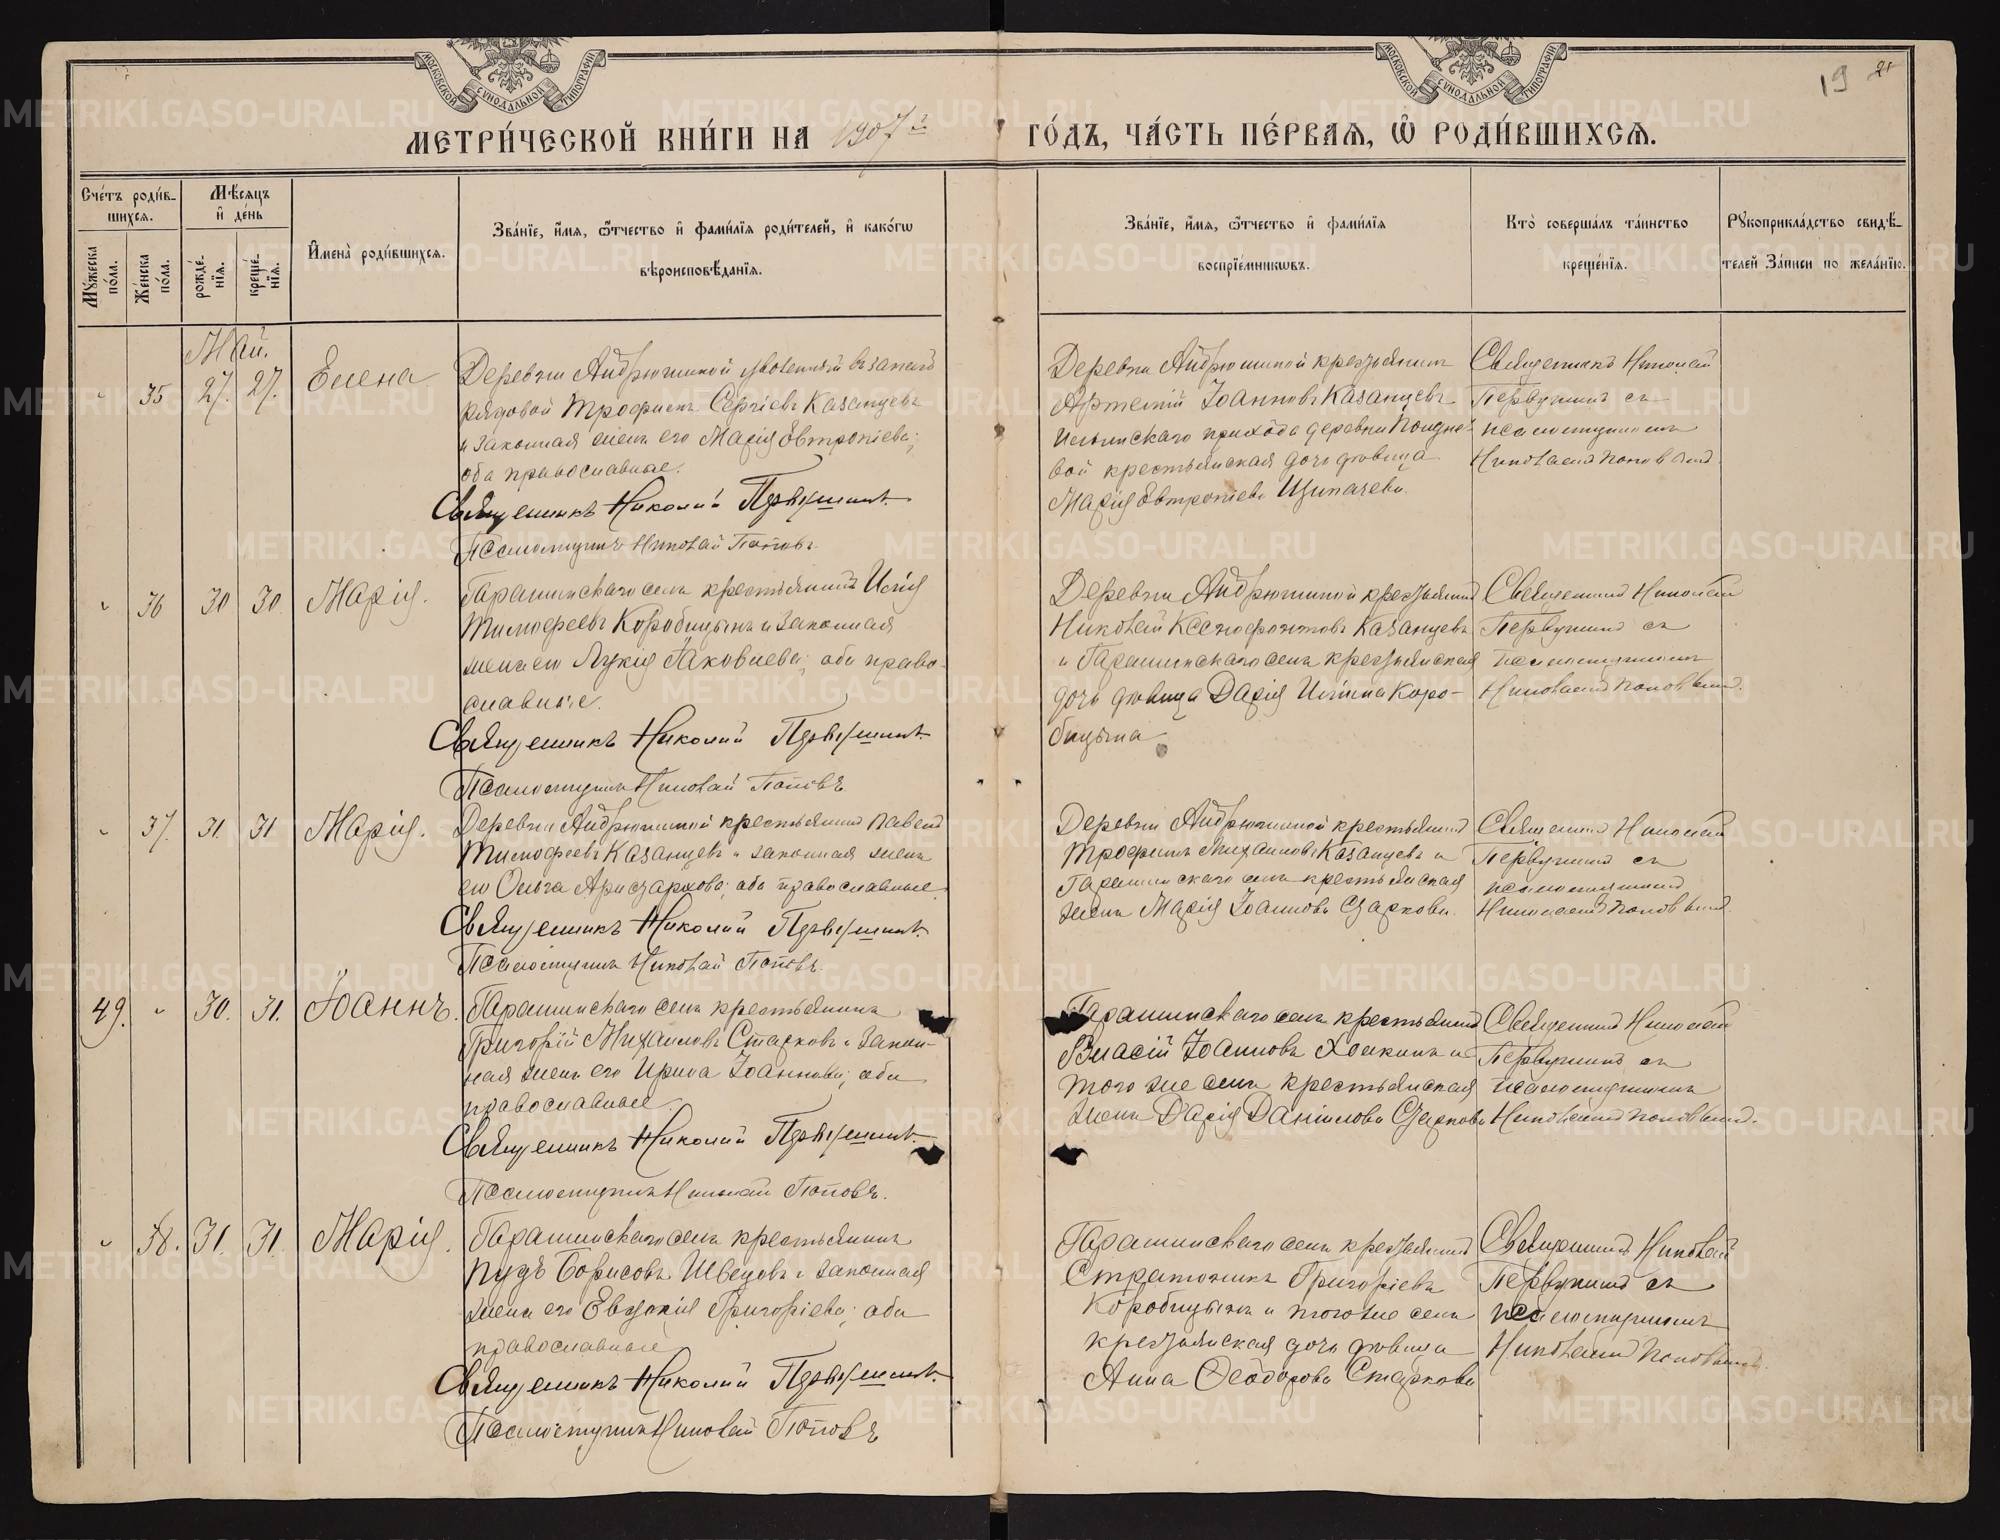 МОСКОВСКОЙ СУНОДАЛЬНОЙ ТИПОГРАФІИ
МОСКОВСКОЙ СУНОДАЛЬНОЙ ТИПОГРАФІИ
19
21
МЕТРИ́ЧЕСКОЙ КНИ́ГИ НА 1907й ГО́ДЪ, ЧА́СТЬ ПЕ́РВАѦ, Ѡ҆ РОДИ́ВШИХСѦ.
Сче́тъ роди́в-
шихсѧ.
Мꙋ́жеска по́ла.
Же́нска по́ла.
Мѣ́сѧцъ
и҆ де́нь
рожде́-
нїѧ.
креще́-
нїѧ.
И҆мена̀ роди́вшихсѧ.
Зва́нїе, и҆́мѧ, ѻ҆́тчество и҆ фами́лїѧ роди́телей, и҆ како́гѡ
вѣроисповѣ́данїѧ.
Зва́нїе, и҆́мѧ, ѻ҆́тчество и҆ фами́лїѧ
воспрїе́мникѡвъ.
Кто̀ соверша́лъ та́инство
креще́нїѧ.
Рꙋкоприкла́дство свидѣ́-
телей за́писи по жела́нїю.
Май.
" 35 27. 27. Елена
Деревни Андрюшиной уволенный въ запасъ
рядовой Трофимъ Сергіевъ Казанцевъ
и законная жена его Марія Евтропіева;
оба православные.
Священникъ Николай Первушинъ.
Псаломщикъ Николай Поповъ.
Деревни Андрюшиной крестьянинъ
Артемій Іоанновъ Казанцевъ
Ильинскаго прихода деревни
вой крестьянская дочь дѣвица
Марія Евтропіева Щипачева.
Священникъ Николай
Первушинъ съ
псаломщикомъ
Николаемъ Поповымъ.
" 36 30 30 Марія.
Гарашкинскаго села крестьянинъ Илія
Тимофеевъ Коробицынъ и законная
жена его Лукія Іаковлева; оба право-
славные.
Священникъ Николай Первушинъ.
Псаломщикъ Николай Поповъ
Деревни Андрюшиной крестьянинъ
Николай Ксенофонтовъ Казанцевъ
и Гарашкинскаго села крестьянская
дочь дѣвица Дарія Иліина Коро-
бицына
Священникъ Николай
Первушинъ съ
псаломщикомъ
Николаемъ Поповымъ.
" 37. 31. 31 Марія.
Деревни Андрюшиной крестьянинъ Павелъ
Тимофеевъ Казанцевъ и законная жена
его Ольга Аристархова; оба православные
Священникъ Николай Первушинъ.
Псаломщикъ Николай Поповъ.
Деревни Андрюшиной крестьянинъ
Трофимъ Михаиловъ Казанцевъ и
Гарашкинскаго села крестьянская
жена Марія Іоаннова Старкова.
Священникъ Николай
Первушинъ съ
псаломщикомъ
Николаемъ Поповымъ.
49. " 30. 31. Іоаннъ.
Гарашкинскаго села крестьянинъ
Григорій Михаиловъ Старковъ и закон-
ная жена его Ирина Іоаннова; оба
православные
Священникъ Николай Первушинъ.
Псаломщикъ Николай Поповъ.
Гарашкинскаго села крестьянинъ
Власій Іоанновъ Холкинъ и
того же села крестьянская
жена Дарія Даніилова Старкова
Священникъ Николай
Первушинъ съ
псаломщикомъ
Николаемъ Поповымъ.
" 38. 31. 31. Марія.
Гарашкинскаго села крестьянинъ
Пудъ Борисовъ Швецовъ и законная
жена его Евдокія Григоріева; оба
православные
Священникъ Николай Первушинъ.
Псаломщикъ Николай Поповъ
Гарашкинскаго села крестьянинъ
Стратоникъ Григоріевъ
Коробицынъ и того же села
крестьянская дочь дѣвица
Анна Ѳеодорова Старкова
Священникъ Николай
Первушинъ съ
псаломщикомъ
Николаемъ Поповымъ.
METRIKI.GASO-URAL.RU